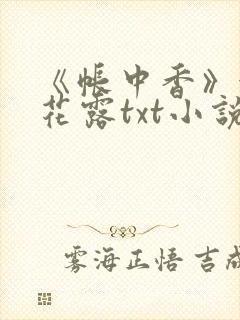 《帐中香》
花露txt小说
雾海正悟 吉成